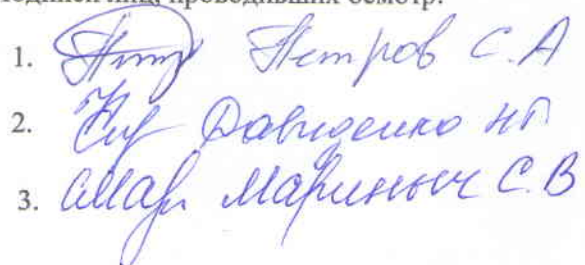 лиц, проводивших осмотр:
1. Петров С.А
2. Давиденко Н.
3. Мариныч С.В